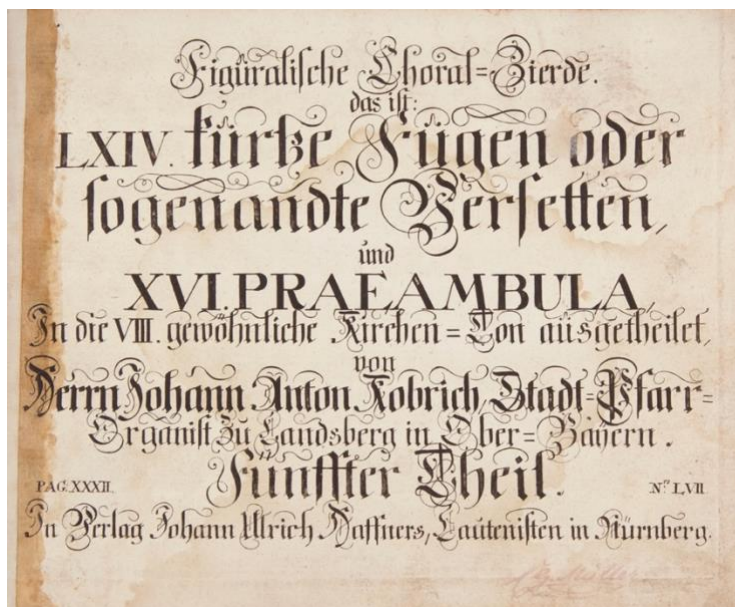 Figüralische Choral=Zierde.
das ist:
LXIV. kürtze Fügen oder
sogenandte Versetten,
und
XVI. PRAEAMBULA,
In die VIII. gewöhnliche Kirchen=Ton aüsgetheilet,
von
Herrn Johann Anton Kobrich Stadt=Pfarr=
Organist zu Landsberg in Ober=Bayern.
Fünffter Theil.
PAG. XXXII. Nº. LVII
In Verlag Johann Ulrich Haffners, Lautenisten in Nürnberg.